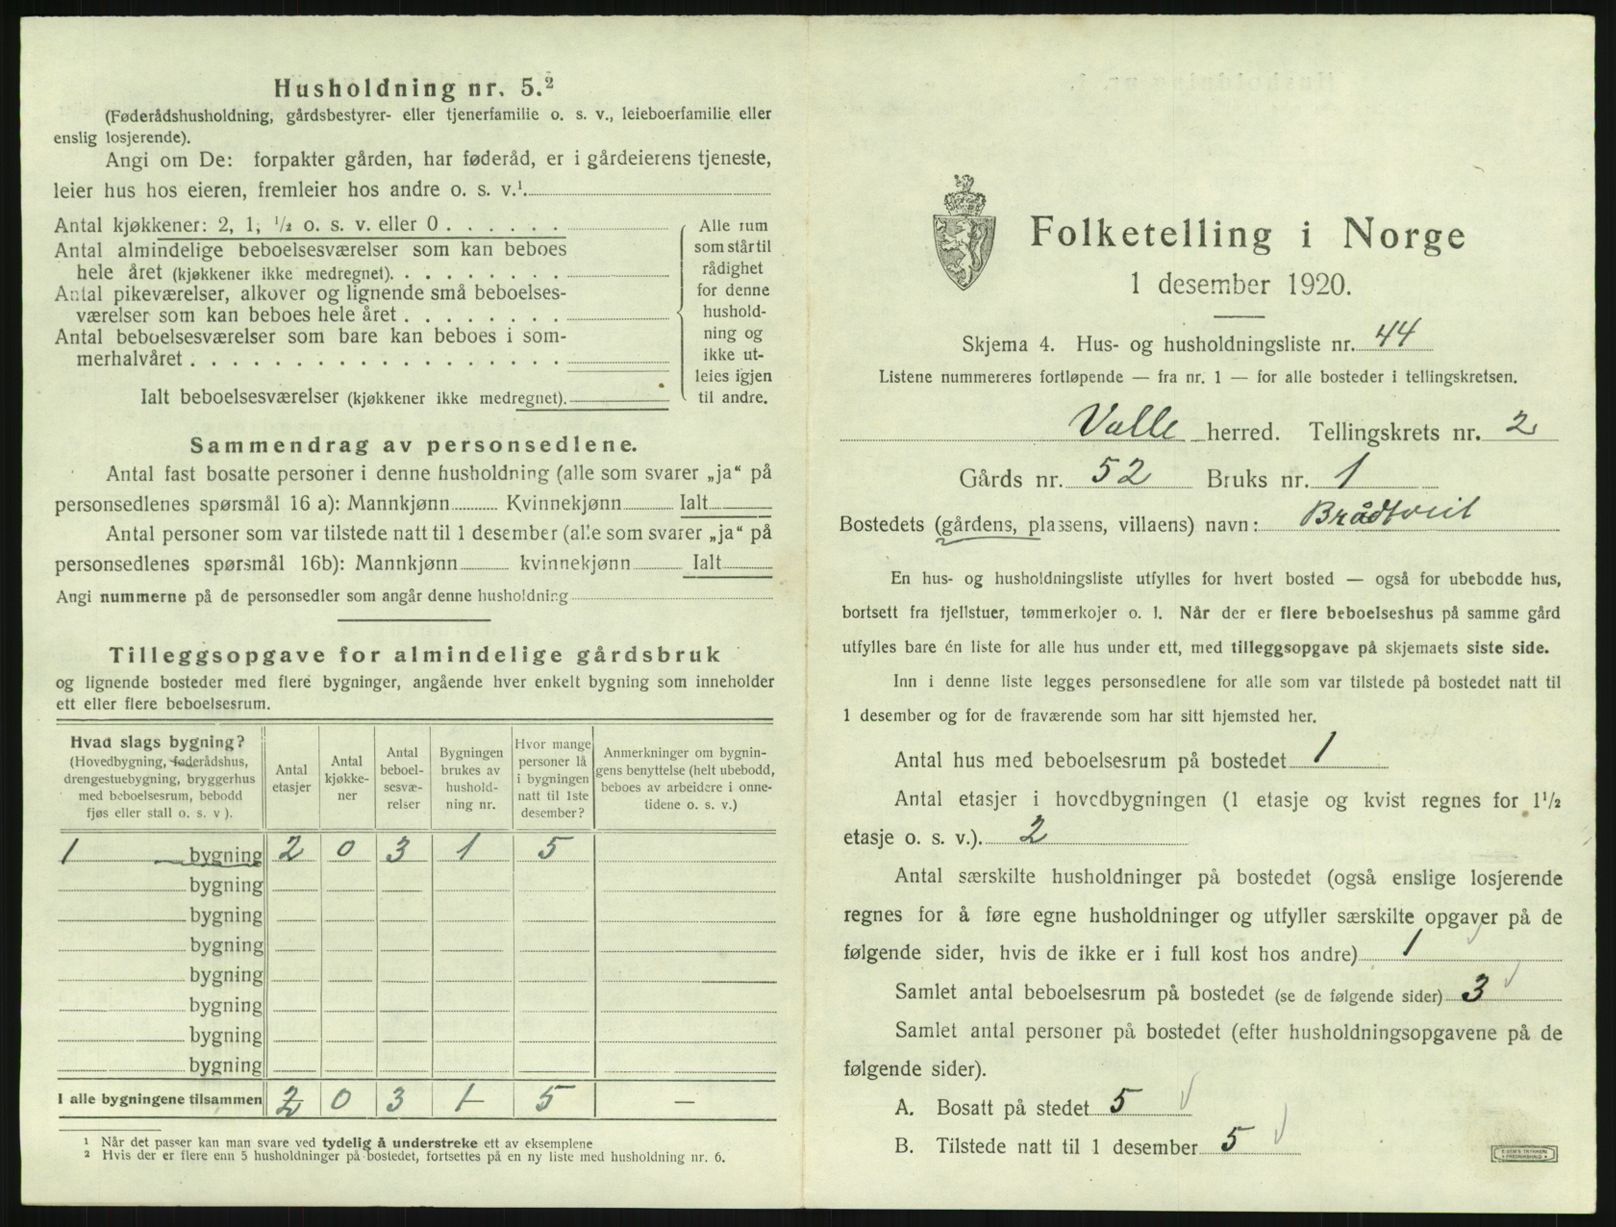 Husholdning nr. 5.²
(Føderådshusholdning, gårdsbestyrer- eller tjenerfamilie o. s. v., leieboerfamilie eller
enslig losjerende).
Angi om De: forpakter gården, har føderåd, er i gårdeierens tjeneste,
leier hus hos eieren, fremleier hos andre o. s. v.¹
Antal kjøkkener: 2, 1, ½ o. s. v. eller 0
Antal almindelige beboelsesværelser som kan beboes
hele året (kjøkkener ikke medregnet).
Antal pikeværelser, alkover og lignende små beboelses-
værelser som kan beboes hele året
Antal beboelsesværelser som bare kan beboes i som-
merhalvåret
Ialt beboelsesværelser (kjøkkener ikke medregnet).
Alle rum
som står til
rådighet
for denne
hushold-
ning og
ikke ut-
leies igjen
til andre.
Sammendrag av personsedlene.
Antal fast bosatte personer i denne husholdning (alle som svarer „ja“ på
personsedlenes spørsmål 16 a): Mannkjønn Kvinnekjønn Ialt
Antal personer som var tilstede natt til 1 desember (alle som svarer „ja“ på
personsedlenes spørsmål 16b): Mannkjønn kvinnekjønn Ialt
Angi nummerne på de personsedler som angår denne husholdning
Tilleggsopgave for almindelige gårdsbruk
og lignende bosteder med flere bygninger, angående hver enkelt bygning som inneholder
ett eller flere beboelsesrum.
Hvad slags bygning?
(Hovedbygning, føderådshus,
drengestuebygning, bryggerhus
med beboelsesrum, bebodd
fjøs eller stall o. s. v ).
Antal
etasjer
Antal
kjøkke-
ner
Antal
beboel-
sesvæ-
relser
Bygningen
brukes av
hushold-
ning nr.
Hvor mange
personer lå
i bygningen
natt til 1ste
desember?
Anmerkninger om bygnin-
gens benyttelse (helt ubebodd,
beboes av arbeidere i onne-
tidene o. s. v.)
1 bygning 2 0 3 1 5
bygning
bygning
bygning
bygning
bygning
bygning
bygning
I alle bygningene tilsammen 2 0 3 1 5 —
¹ Når det passer kan man svare ved tydelig å understreke ett av eksemplene
² Hvis der er flere enn 5 husholdninger på bostedet, fortsettes på en ny liste med husholdning nr. 6.
Folketelling i Norge
1 desember 1920.
Skjema 4. Hus- og husholdningsliste nr. 44
Listene nummereres fortløpende — fra nr. 1 — for alle bosteder i tellingskretsen.
Valle herred. Tellingskrets nr. 2
Gårds nr. 52 Bruks nr. 1
Bostedets (gårdens, plassens, villaens) navn: Brådtveit
En hus- og husholdningsliste utfylles for hvert bosted — også for ubebodde hus,
bortsett fra fjellstuer, tømmerkojer o. l. Når der er flere beboelseshus på samme gård
utfylles bare én liste for alle hus under ett, med tilleggsopgave på skjemaets siste side.
Inn i denne liste legges personsedlene for alle som var tilstede på bostedet natt til
1 desember og for de fraværende som har sitt hjemsted her.
Antal hus med beboelsesrum på bostedet 1
Antal etasjer i hovedbygningen (1 etasje og kvist regnes for 1½
etasje o. s. v.). 2
Antal særskilte husholdninger på bostedet (også enslige losjerende
regnes for å føre egne husholdninger og utfyller særskilte opgaver på de
følgende sider, hvis de ikke er i full kost hos andre) 1
Samlet antal beboelsesrum på bostedet (se de følgende sider) 3
Samlet antal personer på bostedet (efter husholdningsopgavene på de
følgende sider).
A. Bosatt på stedet 5
B. Tilstede natt til 1 desember 5